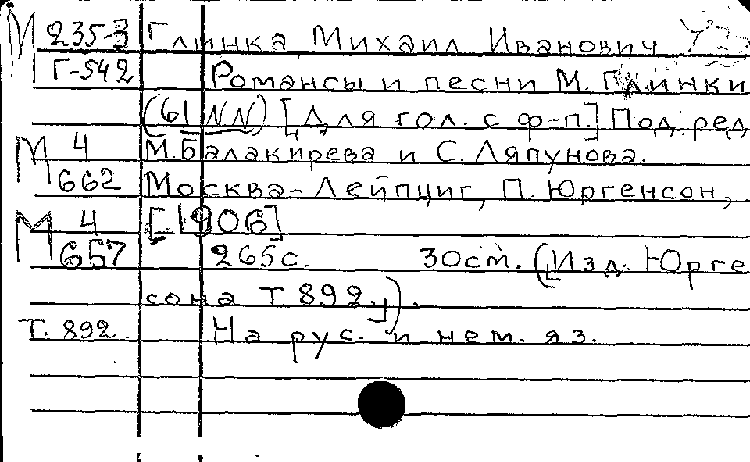 М 235-3 Глинка, Михаил Иванович
Г-542 Романсы и песни М. Глинки
(61 NN) [Для гол. с ф-п.] Под ред
М 4 М. Балакирева и С. Ляпунова.
662 Москва-Лейпциг, П. Юргенсон,
М 4 [1906]
657 265 с. 30 ст. (Изд. Юрге
сона Т 892.).
Т. 892 На рус. и нем. яз.